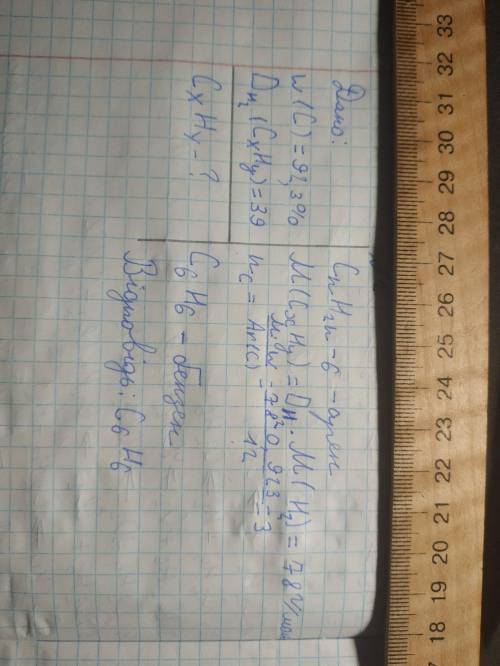 Дано:
w(C) = 92,3%
D H₂ (CxHy) = 39
CxHy - ?
CnH2n-6 - арен
M(CxHy) = D H₂ · M(H₂) = 78 г/моль
nc = M·w / Ar(C) = 78·0,923 / 12 =
C6H6 - бензен
Відповідь: C6H6
33 32 31 30 29 28 27 26 25 24 23 22 21 20 19 18